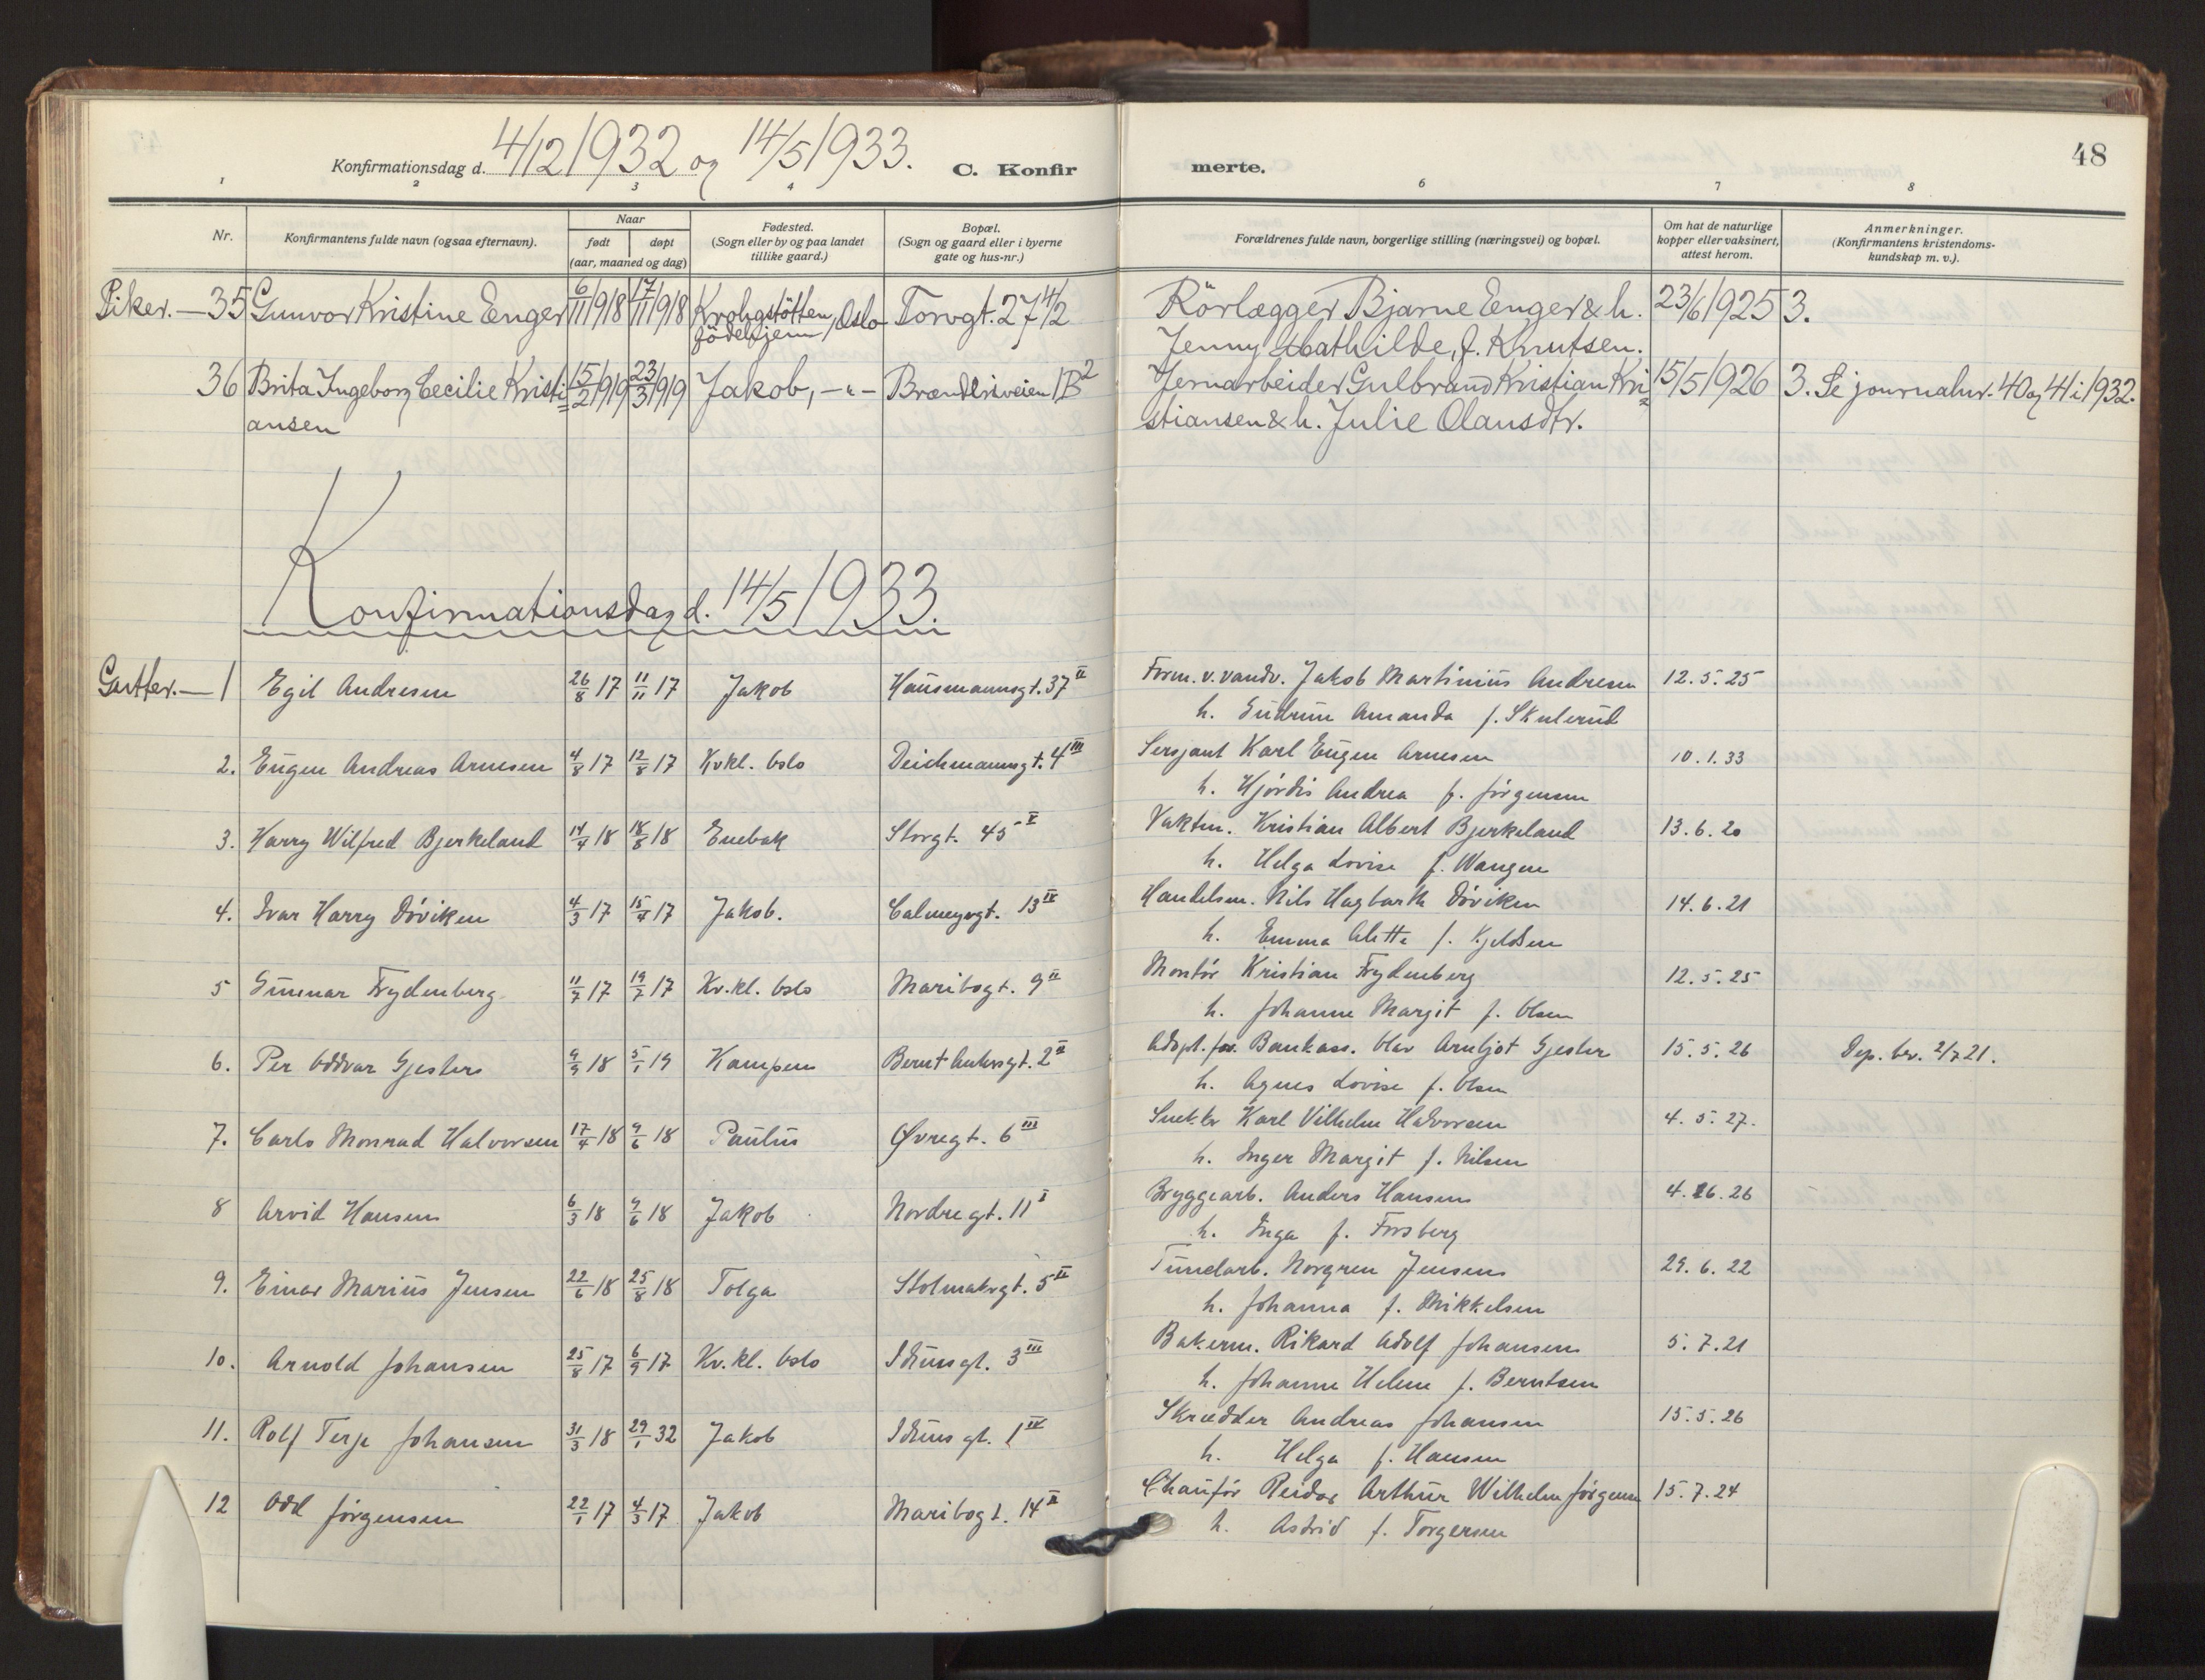 48
Konfirmationsdag d. 4/12 1932 og 14/5 1933. C. Konfir merte.
1 2 3 4 6 7 8
Nr. Konfirmantens fulde navn (ogsaa efternavn). Naar født døpt (aar, maaned og dag) Fødested. (Sogn eller by og paa landet tillike gaard.) Bopæl. (Sogn og gaard eller i byerne gate og hus-nr.) Forældrenes fulde navn, borgerlige stilling (næringsvei) og bopæl. Om hat de naturlige kopper eller vaksinert, attest herom. Anmerkninger. (Konfirmantens kristendoms-kundskap m. v.).
Piker. — 35 Gunvor Kristine Enger 6/11 1918 17/11 1918 Krohgstötten födehjem, Oslo Torvgt. 27 4/2 Rörlægger Bjarne Enger & h. 23/6 1925 3.
Jenny Mathilde, f. Knutsen.
36 Brita Ingeborg Cecilie Kristi= 15/2 1919 23/3 1919 Jakob, -"- Brendlisveien 1B² Jernarbeider Gulbrand Kristian Kri= 15/5 1926 3. Se journalnr. 40 og 41 i 1932.
ansen stiansen & h. Julie Olausdtr.
Konfirmationsdag d. 14/5 1933.
Gutter. — 1 Egil Andresen 26/8 17 11/11 17 Jakob Hausmannsgt. 37 II Form. v. vandv. Jakob Martinius Andresen 12.5.25
h. Gudrun Amanda f. Skulerud
2. Eugen Andreas Arnesen 4/8 17 12/8 17 Kvkl. Oslo Deichmannsgt. 4 III Sersjant Karl Eugen Arnesen 10.1.33
h. Hjördis Andrea f. Jörgensen
3. Harry Wilfred Bjerkeland 14/4 18 18/8 18 Enebak Storgt. 45 V Vaktm. Kristian Albert Bjerkeland 13.6.20
h. Helga Lovise f. Wangen
4. Ivar Harry Döviken 4/3 17 15/4 17 Jakob. Calmeyergt. 13 IV Handelsm. Nils Hagbarth Döviken 14.6.21
h. Emma Alette f. Kjeldsen
5 Gunnar Frydenberg 11/7 17 19/7 17 Kv.kl. Oslo Maribogt. 9 II Montör Kristian Frydenberg 12.5.25
h. Johanne Margit f. Olsen
6. Per Oddvar Gjesler 9/9 18 5/1 19 Kampen Bernt Ankersgt. 2 II Adopt. for. Bankass. Olav Arnljot Gjesler 15.5.26 Dep. brv. 2/7 21.
h. Agnes Lovise f. Olsen
7. Carlo Monrad Halvorsen 17/4 18 9/6 18 Paulus Øvregt. 6 III Snekker Karl Vilhelm Halvorsen 4.5.27.
h. Inger Margit f. Nilsen
8 Arvid Hansen 6/3 18 9/6 18 Jakob Nordregt. 11 I Bryggearb. Anders Hansen 4.6.26
h. Inga f. Forsberg
9. Einar Marius Jensen 22/6 18 25/8 18 Tolga Stolmakrgt. 5 II Tunelarb. Norgren Jensen 29.6.22
h. Johanna f. Mikkelsen
10. Arnold Johansen 25/8 17 6/9 17 Kv.kl. Oslo Idunsgt. 3 III Bakerm. Rikard Adolf Johansen 5.7.21
h. Johanne Helene f. Berntsen
11. Rolf Terje Johansen 31/3 18 29/1 32 Jakob Idunsgt. 1 IV Skrædder Andreas Johansen 15.5.26
h. Helga f. Hansen
12 Odd Jörgensen 22/1 17 4/3 17 Jakob Maribogt. 14 II Chauför Reidar Arthur Wilhelm Jörgensen 15.7.24
h. Astrid f. Torgersen